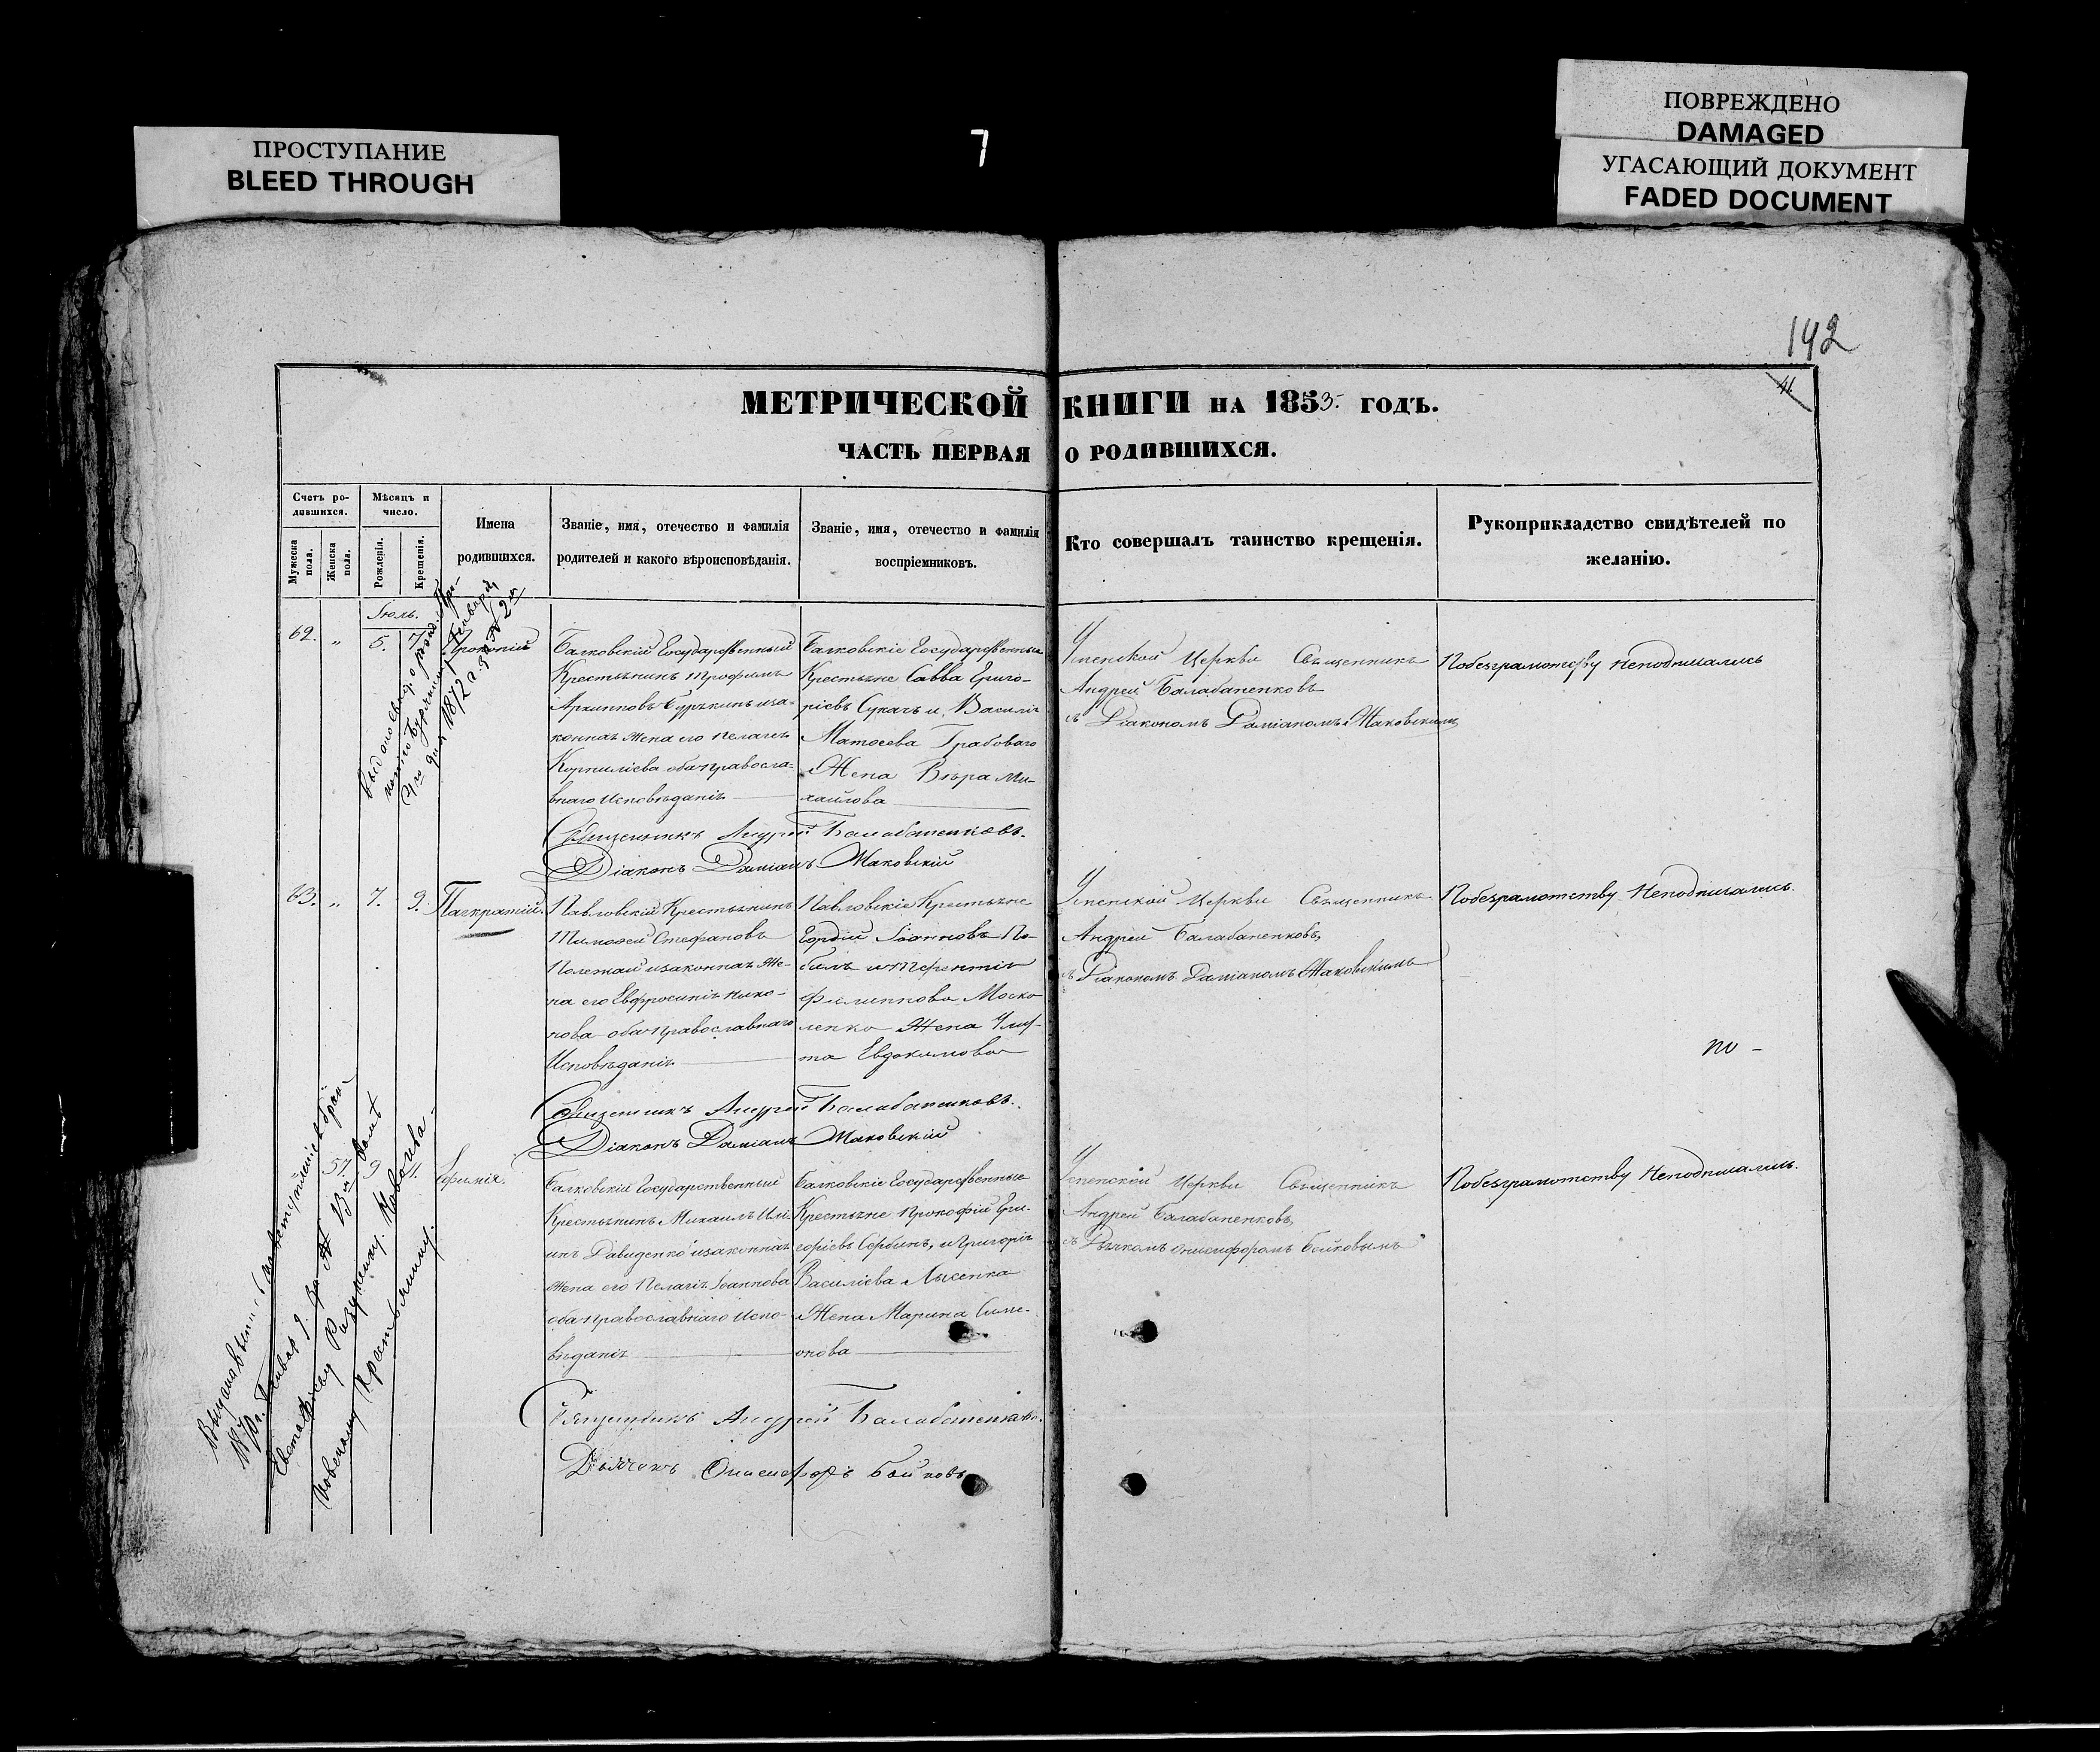 ПРОСТУПАНИЕ
BLEED THROUGH
7
ПОВРЕЖДЕНО
DAMAGED
УГАСАЮЩИЙ ДОКУМЕНТ
FADED DOCUMENT
142
МЕТРИЧЕСКОЙ КНИГИ НА 1853 ГОДЪ.
ЧАСТЬ ПЕРВАЯ О РОДИВШИХСЯ.
Счетъ ро-
дившихся.
Мужеска
пола.
Женска
пола.
Мѣсяцъ и
число.
Рожденія.
Крещенія.
Имена
родившихся.
Званіе, имя, отечество и фамилія
родителей и какого вѣроисповѣданія.
Званіе, имя, отечество и фамилія
воспріемниковъ.
Кто совершалъ таинство крещенія.
Рукоприкладство свидѣтелей по
желанію.
Іюль.
62. " 5. 7. Прокопій
Балковскій Государственный
Крестьянинъ Трофимъ
Архиповъ и за-
конная жена его Пелагея
Корниліева оба правосла-
внаго Исповѣданія
Балковскіе Государственные
Крестьяне Савва Григо-
ріевъ Сукачъ и Василія
Матвеева Грабоваго
Жена Вѣра Ми-
хайлова
Успенской Церкви Священникъ
Андрей Балабаненковъ
съ Діакономъ Даміаномъ Маковскимъ
Побезграмотству неподписались
Священникъ Андрей Балабаненковъ.
Діаконъ Даміанъ Маковскій
63. " 7. 9. Панкратій.
Павловскій Крестьянинъ
Тимофей Стефановъ
Полежай и законная Же-
на его Евфросинія Нико-
нова оба православнаго
Исповѣданія
Павловскіе Крестьяне
Гордій Іоанновъ По-
билъ и Терентія
Филиппова Моско
ленко Жена Ули-
та Евдокимова
Успенской Церкви Священникъ
Андрей Балабаненковъ,
съ Діакономъ Даміаномъ Маковскимъ
Побезграмотству Неподписались.
по -
Священникъ Андрей Балабаненковъ.
Діаконъ Даміанъ Маковскій
57. 9. 11. Ефимія.
Балковскій Государственный
Крестьянинъ Михаилъ Иль-
инъ Давиденко и законная
жена его Пелагія Іоаннова
оба православнаго Испо-
вѣданія
Балковскіе Государственные
Крестьяне Прокофій Гри-
горіевъ Сербинъ, и Григорія
Василіева Лысенка
Жена Марина Симе-
онова
Успенской Церкви Священникъ
Андрей Балабаненковъ,
съ Дьячкомъ Онисифоромъ Бойковымъ
Побезграмотству Неподписались.
Священникъ Андрей Балабаненковъ.
Дьячокъ Онисифоръ Бойковъ